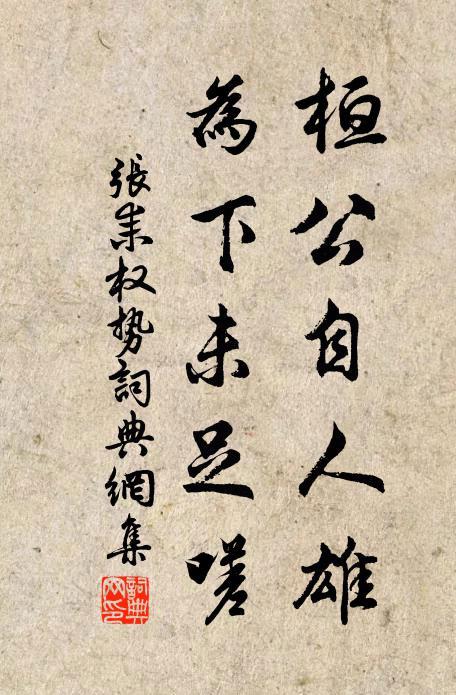 桓公自人雄
為下未足嗟
張耒权势詞典網集
詞典
网印